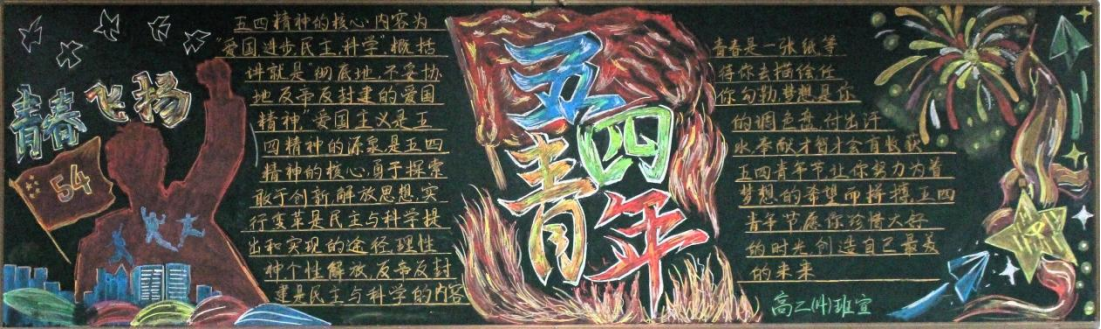 青春飞扬
54
五四精神的核心内容为
"爱国进步民主科学"概括
讲就是"彻底地不妥协
地反帝反封建的爱国
精神"爱国主义是五
四精神的源泉是五四
精神的核心勇于探索
敢于创新解放思想实
行变革是民主与科学提
出和实现的途径理性
神个性解放反帝反封
建是民主与科学的内容
五四
青年
青春是一张纸等
待你去描绘任
你勾勒梦想是你
的调色盘付出汗
水奉献才智才会有收获
五四青年节让你努力为着
梦想的希望而拼搏五四
青年节愿你珍惜大好
的时光创造自己最美
的未来
高二(1)班宣